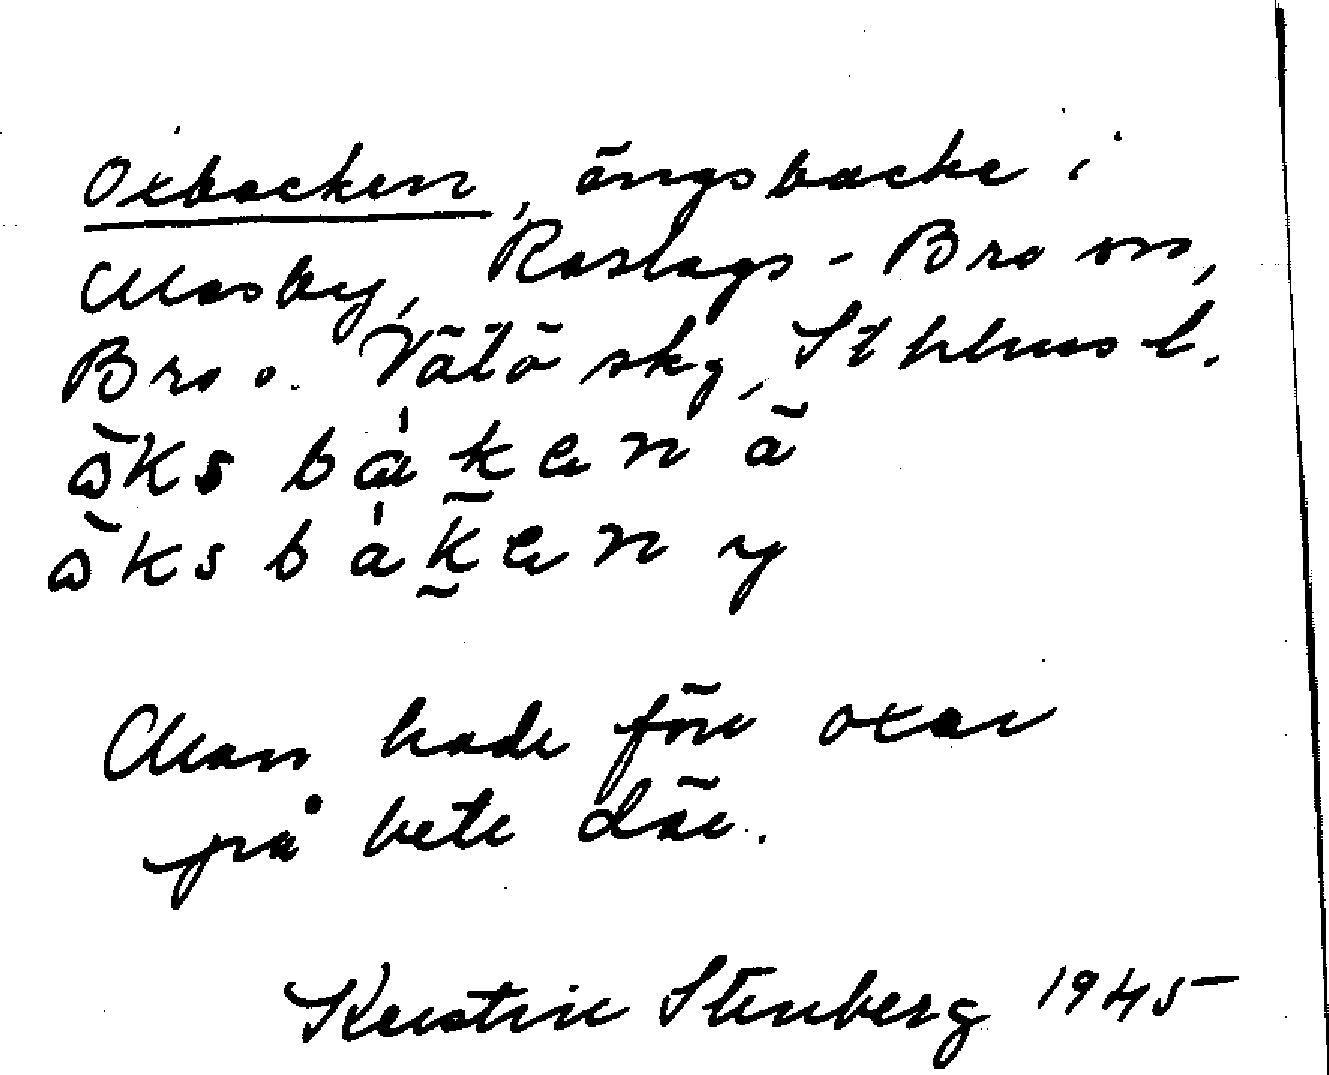 Oxbacken, ängsbacke i
Masby, Roslags-Bro sn,
Bro o. Vätö skg, Sthlms l.
åksbaken ä
åksbaken y
Man hade förr oxar
på bete där.
Kerstin Stenberg 1945